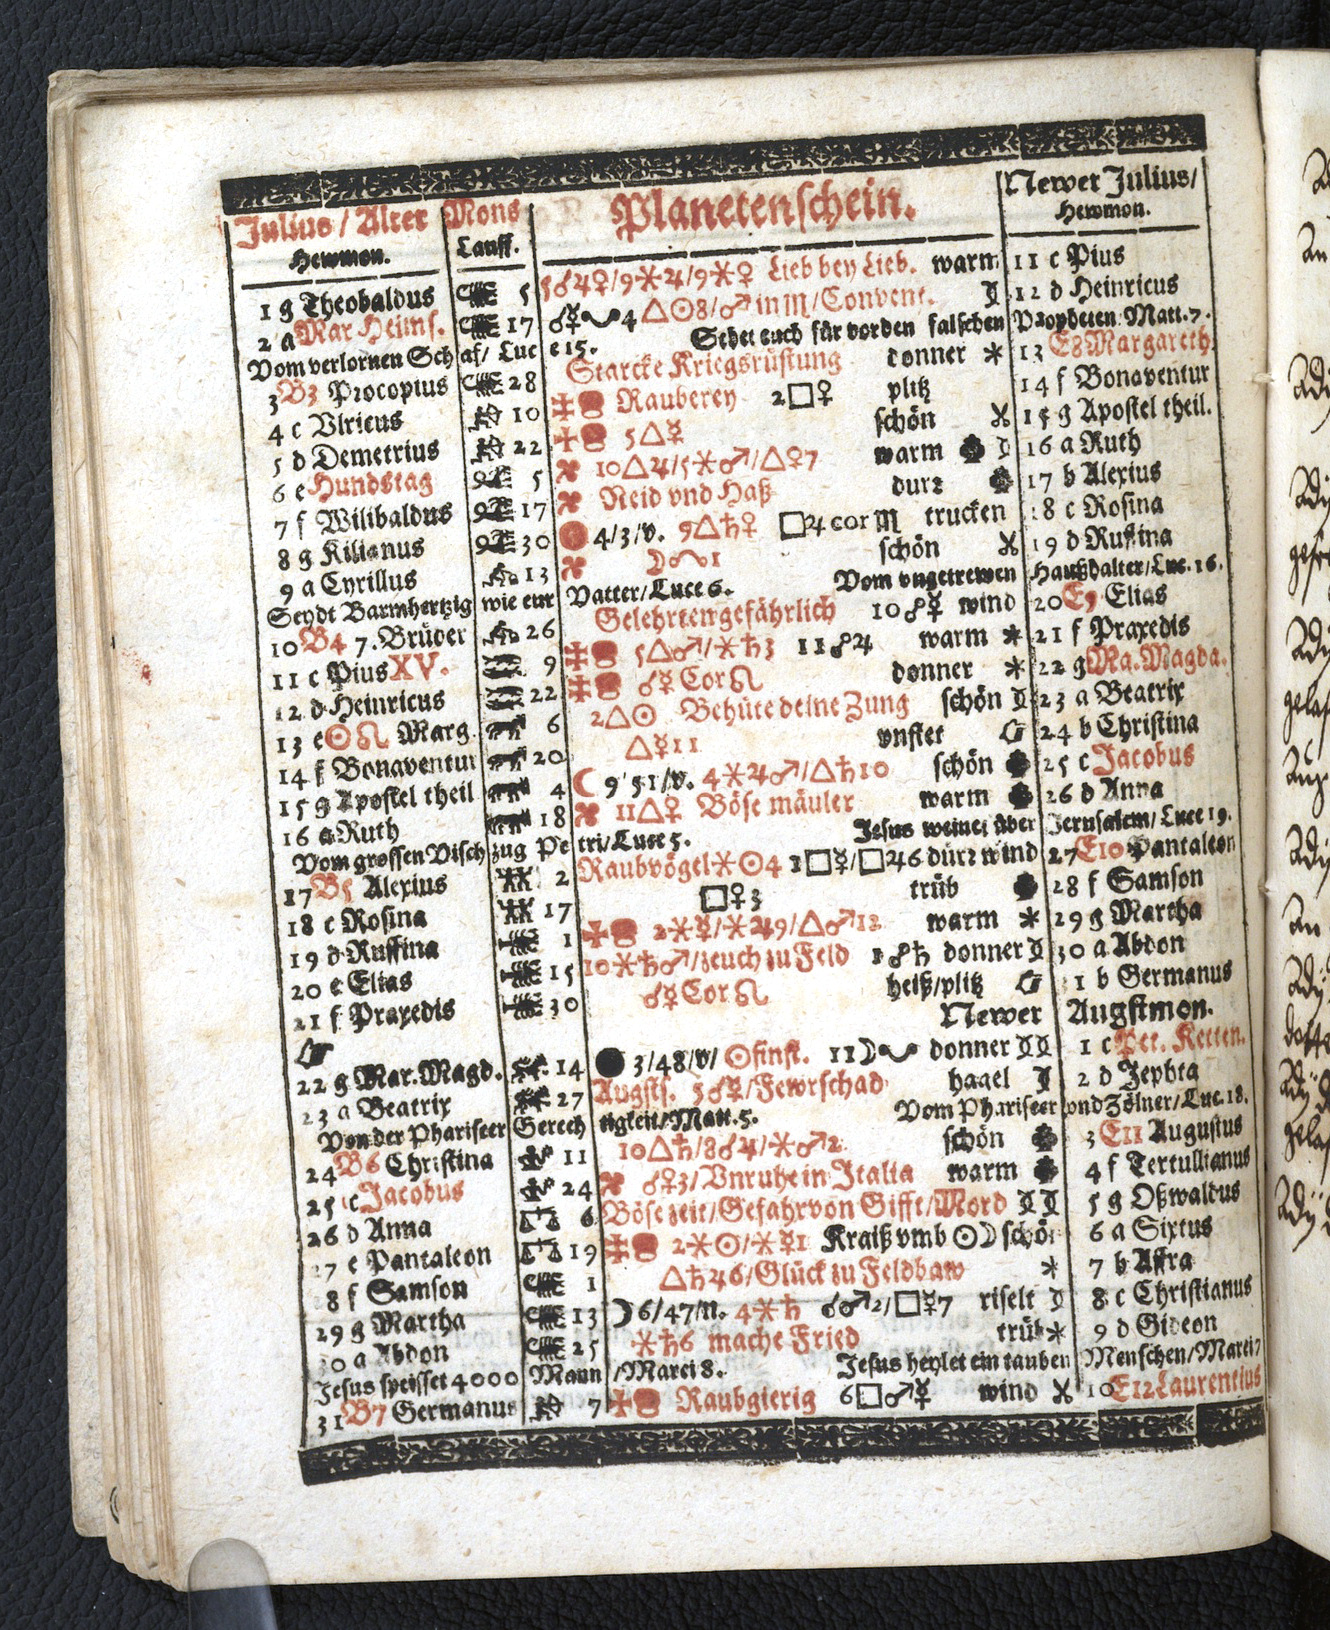 Julius / Alter Mons Planetenschein. Newer Julius /
Hewmon. Lauff. Hewmon.
1 g Theobaldus 5 5☌♃♀/9⚹♃/9⚹♀ Lieb bey Lieb. warm 11 c Pius
2 a Mar. Heims. 17 ☌☿ 4 △☉8/♂ in ♏/Convent. 12 d Heinricus
Vom verlornen Schaf/ Luce 15. Sehet euch für vor den falschen Propheten Matt. 7.
3 B3 Procopius 28 Starcke Kriegsrüstung donner ⚹ 13 E8 Margareth.
4 c Vlricus 10 Rauberey 2□♀ plitz 14 f Bonaventur
5 d Demetrius 22 5△☿ schön 15 g Apostel theil.
6 e Hundstag 5 10△♃/5⚹♂/△♀7 warm 16 a Ruth
7 f Wilibaldus 17 Neid vnd Haß dürz 17 b Alexius
8 g Kilianus 30 4/3/v. 9△♄♀ □♃ cor ♏ trucken 18 c Rosina
9 a Cyrillus 13 1 schön 19 d Ruffina
Seydt Barmhertzig wie eur Vatter/Luce 6. Vom vngetrewen Haußhalter/Luc. 16.
10 B4 7. Brüder 26 Gelehrten gefährlich 10☍☿ wind 20 E9 Elias
11 c Pius XV. 9 5△♂/⚹♄3 11☍♃ warm ⚹ 21 f Praxedis
12 d Heinricus 22 ☌☿ Cor ♌ donner ⚹ 22 g Ma. Magda.
13 e ☉♌ Marg. 6 2△☉ Behüte deine Zung schön 23 a Beatrix
14 f Bonaventur 20 △☿11 vnstet 24 b Christina
15 g Apostel theil 4 ☾ 9/51/v. 4⚹♃♂/△♄10 schön 25 c Jacobus
16 a Ruth 18 11△♀ Böse mäuler warm 26 d Anna
Vom grossen Vischzug Petri/Luce 5. Jesus weinet über Jerusalem/Luce 19.
17 B5 Alexius 2 Raubvögel ⚹☉4 1□☿/□♃6 dürz wind 27 E10 Pantaleon
18 c Rosina 17 □♀3 trüb 28 f Samson
19 d Ruffina 1 2⚹☿/⚹♃9/△♂12 warm ⚹ 29 g Martha
20 e Elias 15 10⚹♄♂/zeuch zu Feld 1☍♄ donner 30 a Abdon
21 f Praxedis 30 ☌♀ Cor ♌ heiß/plitz 31 b Germanus
Newer Augstmon.
22 g Mar. Magd. 14 ● 3/48/v/ ☉finst. 11 donner 1 c Pet. Ketten.
23 a Beatrix 27 Augsts. 5☌☿/Fewrschad hagel 2 d Jephta
Von der Phariseer Gerechtigkeit/Matt. 5. Vom Phariseer vnd Zölner/Luc. 18.
24 B6 Christina 11 10△♄/8☌♃/⚹♂2 schön 3 E11 Augustus
25 c Jacobus 24 ☌♀3/Vnruhe in Italia warm 4 f Tertullianus
26 d Anna 6 Böse zeit/Gefahr von Gifft/Mord 5 g Oßwaldus
27 e Pantaleon 19 2⚹☉/⚹☿1 Kraiß vmb ☉☽ schön 6 a Sixtus
28 f Samson 1 △♄♃6/Glück zu Feldbaw ⚹ 7 b Affra
29 g Martha 13 ☽ 6/47/n. 4⚹♄ ☌♂2/□☿7 riselt 8 c Christianus
30 a Abdon 25 ⚹♄6 mache Fried trüb ⚹ 9 d Gideon
Jesus speisset 4000 Mann/Marci 8. Jesus heylet ein tauben Menschen/Marci 7
31 B7 Germanus 7 Raubgierig 6□♂☿ wind 10 E12 Laurentius